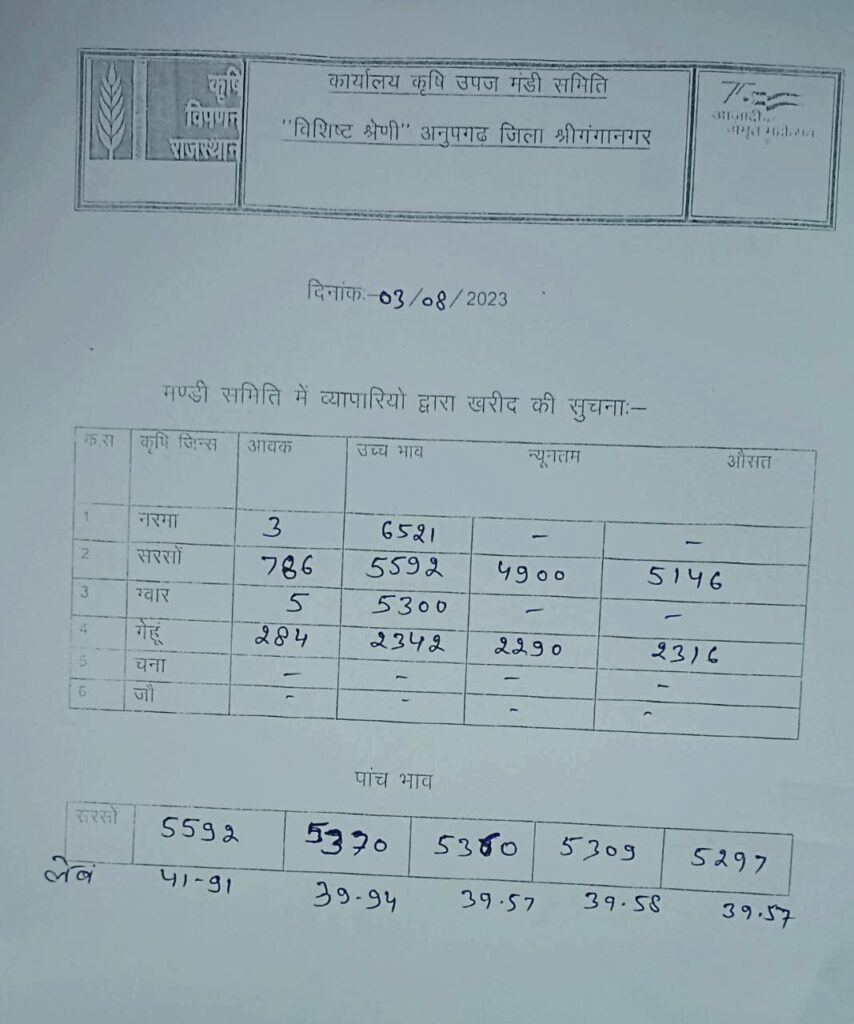 कृषि
विपणन
राजस्थान
कार्यालय कृषि उपज मंडी समिति
"विशिष्ट श्रेणी" अनुपगढ जिला श्रीगंगानगर
आजादी
अमृत महोत्सव
दिनांकः-03/08/2023
मण्डी समिति में व्यापारियो द्वारा खरीद की सुचनाः-
क.स कृषि जिन्स आवक उच्च भाव न्यूनतम औसत
1 नरमा 3 6521 - -
2 सरसों 786 5592 4900 5146
3 ग्वार 5 5300 - -
4 गेहूं 284 2342 2290 2316
5 चना - - - -
6 जौ - - - -
पांच भाव
सरसों 5592 5370 5309 5297
लेब 41-91 39-94 39.57 39.58 39.57